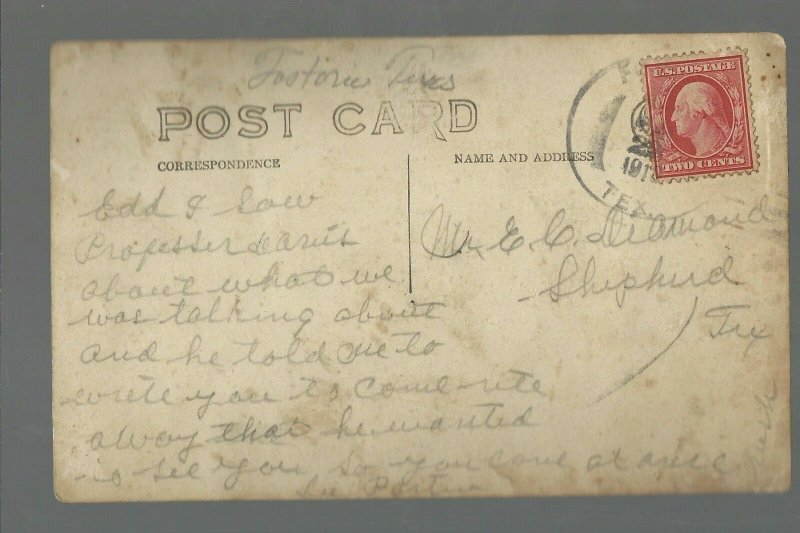 Fostoria Texas
POST CARD
CORRESPONDENCE
NAME AND ADDRESS
U.S. POSTAGE
TWO CENTS
TEX.
Edd I saw
Professer Davis
about what we
was talking about
and he told me to
write you to come rite
away that he wanted
to see you so you come at once
Mr E. C. Diamond
Shepherd
Tex